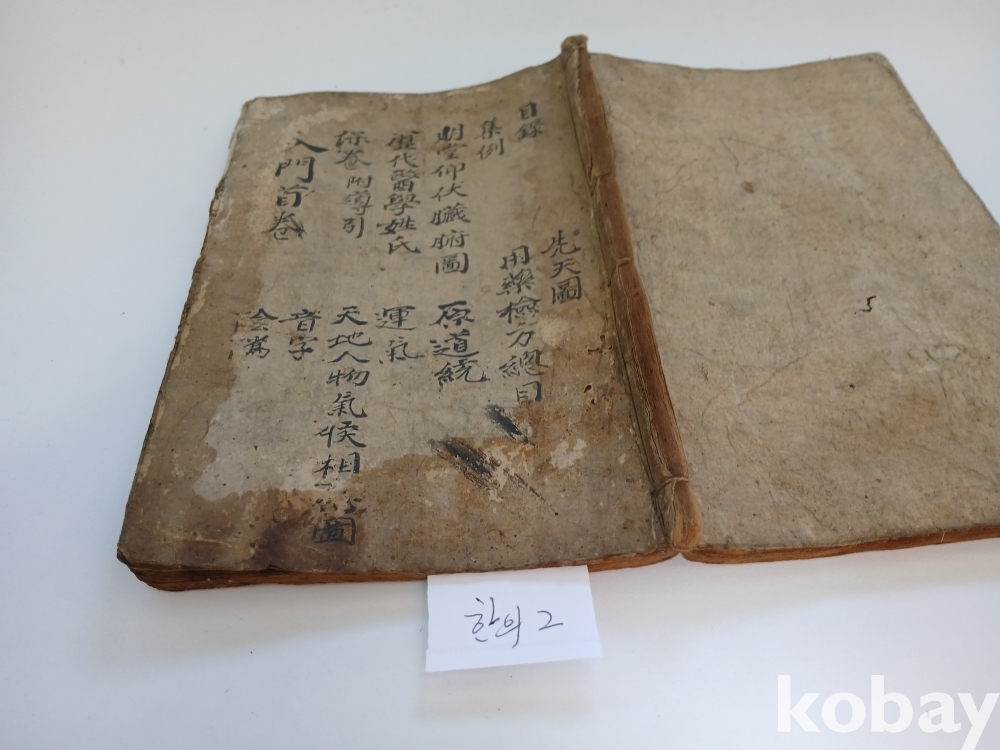 目錄
先天圖
集例
用藥檢方總目
明堂仰伏臟腑圖
原道統
歷代醫學姓氏
運氣
保卷附導引
天地人物氣候相圖
音字
入門首卷
한의 2
kobay